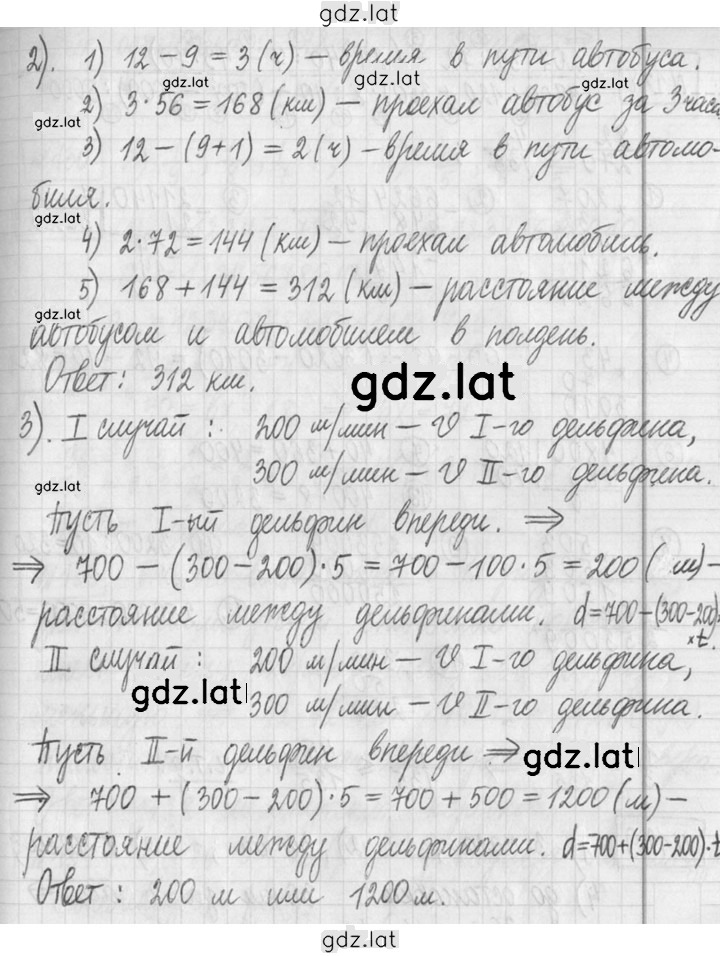 gdz.lat
2). 1) 12 − 9 = 3 (ч) – время в пути автобуса.
gdz.lat
gdz.lat
2) 3 · 56 = 168 (км) – проехал автобус за 3 часа
gdz.lat
3) 12 − (9+1) = 2 (ч) – время в пути автомо-
биля.
gdz.lat
4) 2 · 72 = 144 (км) – проехал автомобиль.
5) 168 + 144 = 312 (км) – расстояние между
автобусом и автомобилем в полдень.
Ответ: 312 км.
gdz.lat
3). I случай: 200 м/мин – v I-го дельфина,
300 м/мин – v II-го дельфина.
gdz.lat
Пусть I-ый дельфин впереди. ⇒
⇒ 700 − (300 − 200) · 5 = 700 − 100 · 5 = 200 (м) –
расстояние между дельфинами. d = 700 − (300-200)·
×t.
II случай: 200 м/мин – v I-го дельфина,
gdz.lat
300 м/мин – v II-го дельфина.
Пусть II-й дельфин впереди ⇒
gdz.lat
⇒ 700 + (300 − 200) · 5 = 700 + 500 = 1200 (м) –
расстояние между дельфинами. d = 700 + (300-200) · t
Ответ: 200 м или 1200 м.
gdz.lat